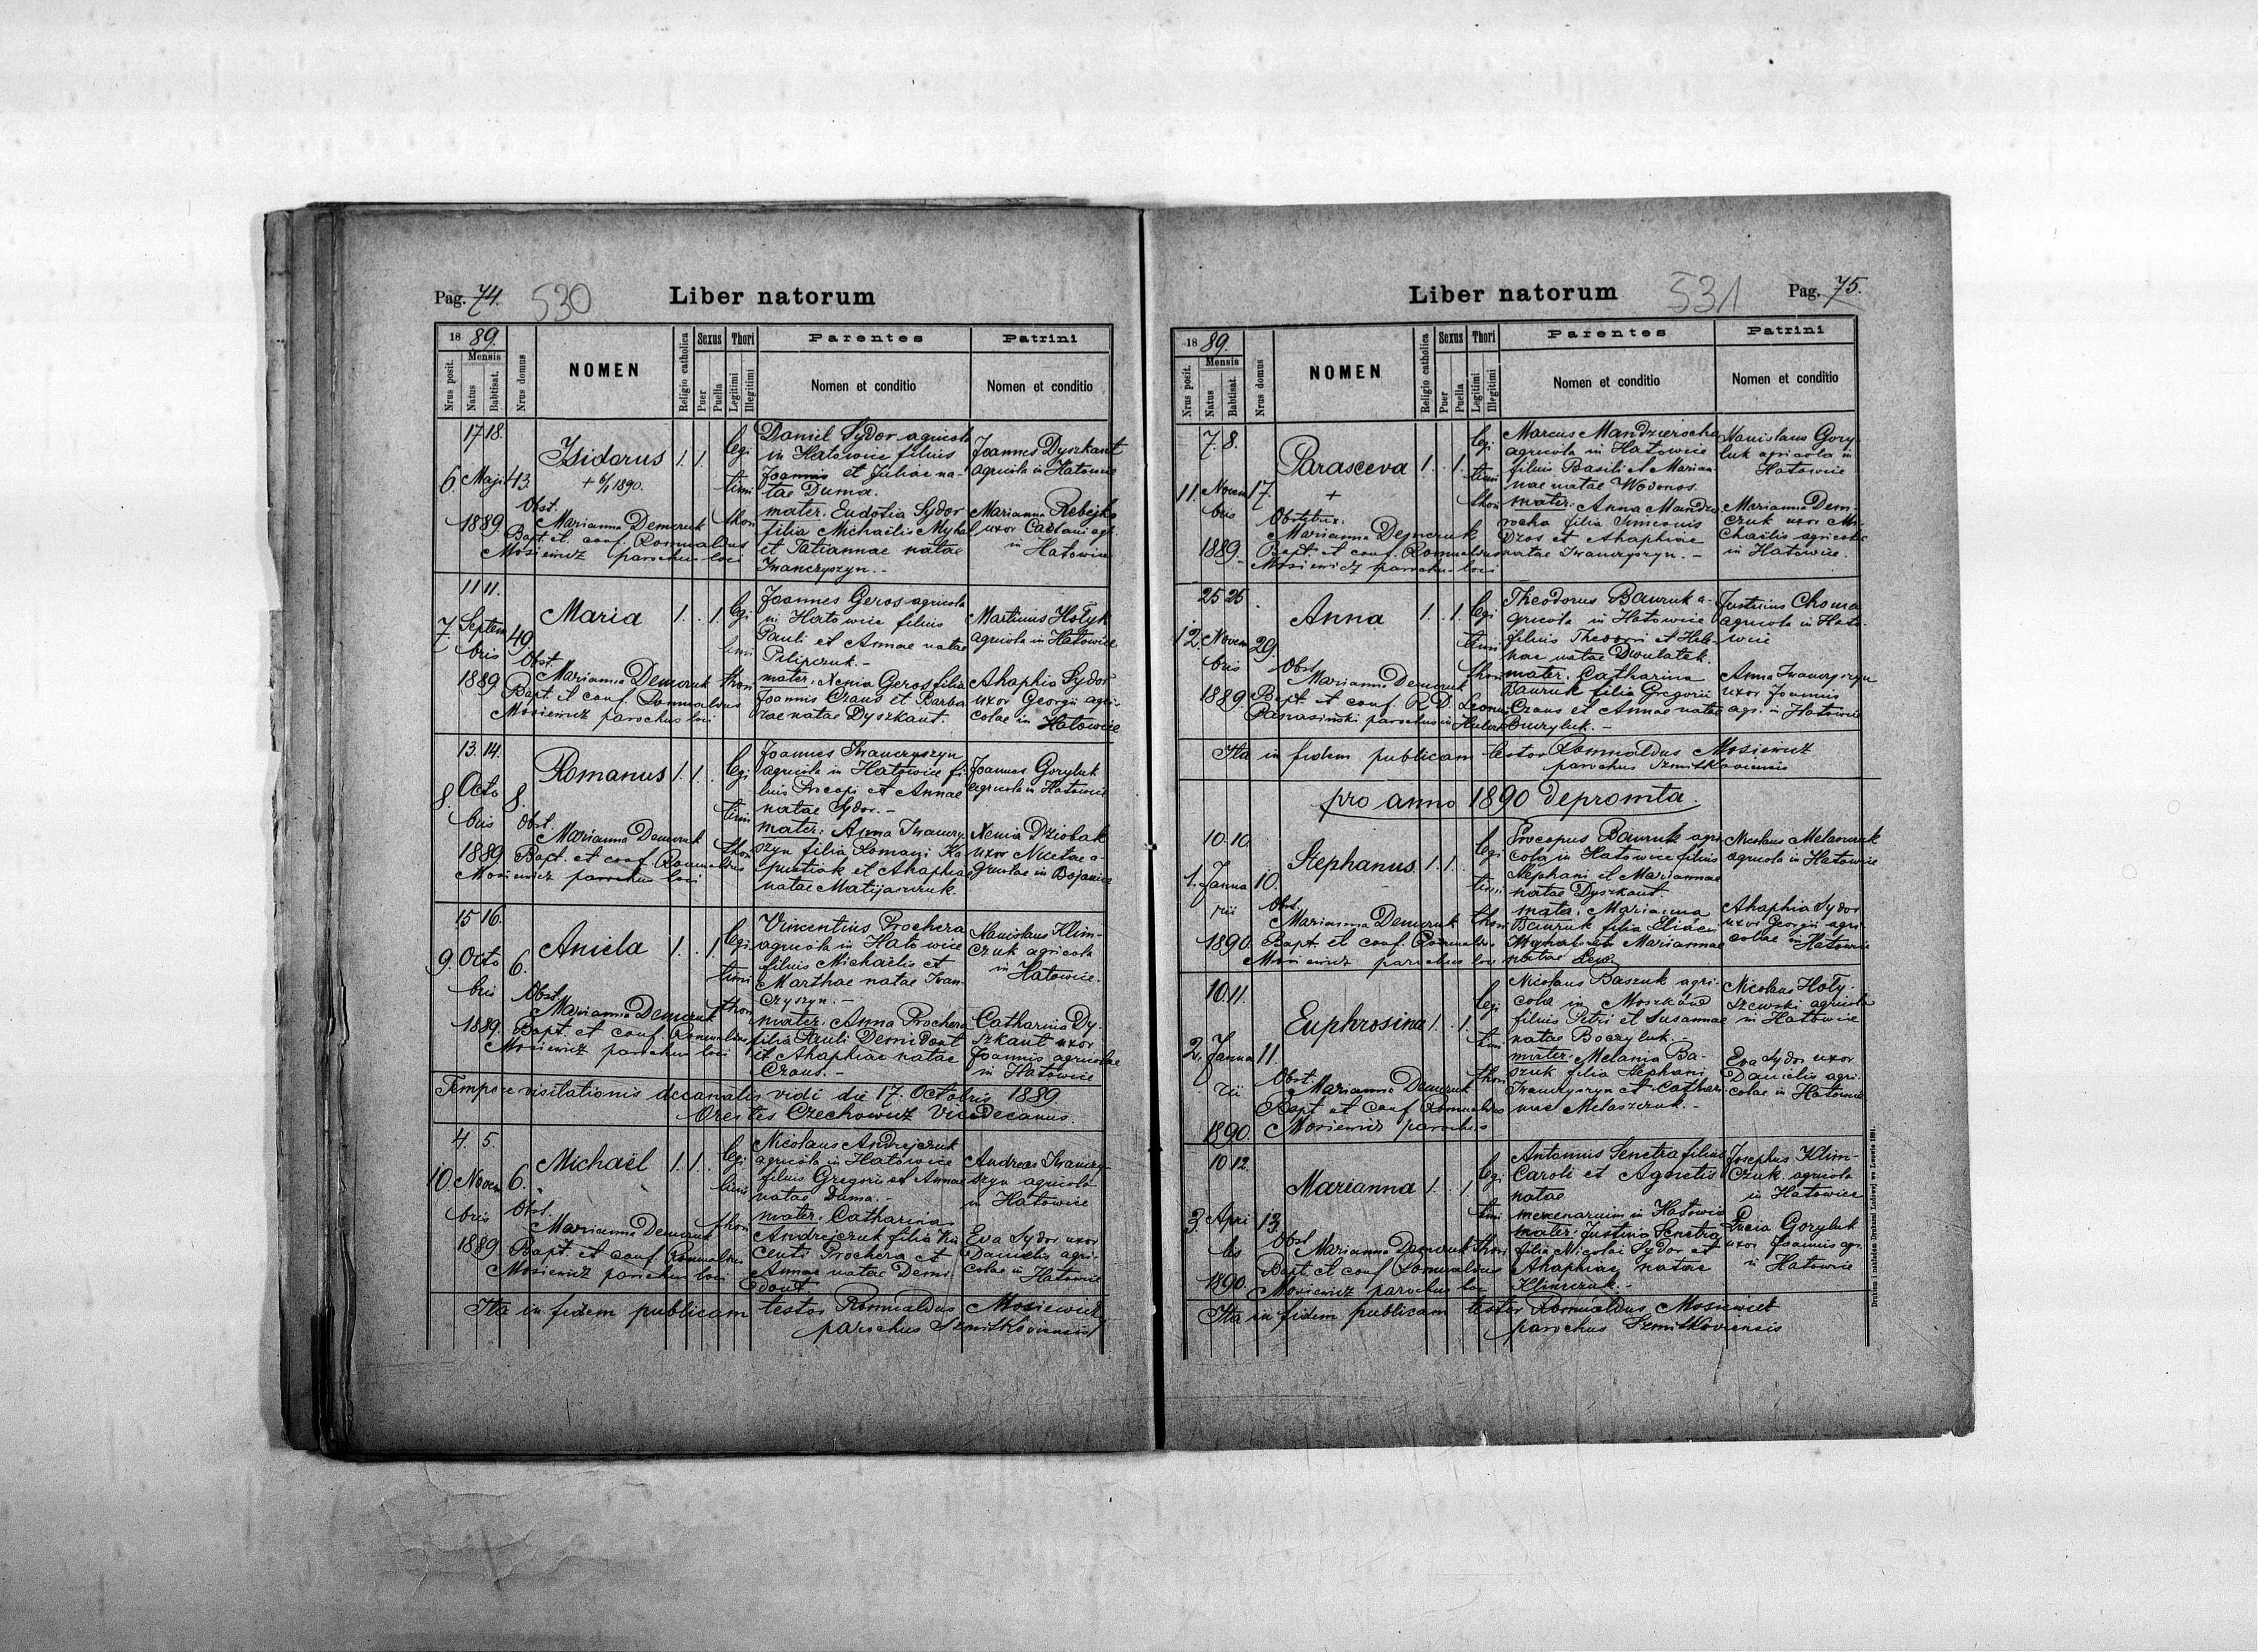 Pag. 74. 530 Liber natorum
18 89.
Mensis
Nrus posit.
Natus
Babtisat.
Nrus domus
NOMEN
Religio catholica
Sexus
Puer
Puella
Thori
Legitimi
Illegitimi
Parentes
Nomen et conditio
Patrini
Nomen et conditio
6.
17 18.
Maji
1889
43.
Isidorus
+ 6/1 1890.
1. 1.
legi
timi
thori
Obst.
Marianna Demczuk
Bapt. et conf. Romualdus
Mosiewicz parochus loci
Daniel Sydor agricola
in Hatowice filius
Joannis et Juliae na-
tae Duma.
mater: Eudoxia Sydor
filia Michaëlis Myhal
et Tatiannae natae
Iwanczyszyn.-
Joannes Dyszkant
agricola in Hatowice
Marianna Rebejko
uxor Casiani agr.
in Hatowice
7.
11 11.
Septem
bris
1889
49.
Maria
1. . 1.
legi
timi
thori
Obst.
Marianna Demczuk
Bapt. et conf. Romualdus
Mosiewicz parochus loci
Joannes Geros agricola
in Hatowice filius
Pauli et Annae natae
Pilipczuk.-
mater: Xenia Geros filia
Joannis Czaus et Barba
rae natae Dyszkant.
Martinus Hołyk
agricola in Hatowice
Ahaphia Sydor
uxor Georgii agri-
colae in Hatowice
8.
13. 14.
Octo
bris
1889
8.
Romanus
1. 1.
legi
timi
thori
Obst.
Marianna Demczuk
Bapt. et conf. Romualdus
Mosiewicz parochus loci
Joannes Iwanczyszyn
agricola in Hatowice fi
lius Procopi et Annae
natae Sydor.-
mater: Anna Iwanczy-
szyn filia Romani Ka
pustiak et Ahaphiae
natae Matijaszczuk.
Joannes Goryluk
agricola in Hatowice
Xenia Dziobak
uxor Nicetae a-
gricolae in Bojanice
9.
15 16.
Octo
bris
1889.
6.
Aniela
1. . 1.
legi
timi
thori
Obst.
Marianna Demczuk
Bapt. et conf. Romualdus
Mosiewicz parochus loci
Vincentius Prochera
agricola in Hatowice
filius Michaëlis et
Marthae natae Iwan-
czyszyn.-
mater: Anna Prochera
filia Pauli Demidont
et Ahaphiae natae
Czaus.-
Stanislaus Klim-
czuk agricola
in Hatowice.
Catharina Dy-
szkant uxor
Joannis agricolae
in Hatowice
Tempore visitationis decanalis vidi die 17. Octobris 1889.
Orestes Czechowicz Vicedecanus.
10.
4. 5.
Novem
bris
1889
6.
Michaël
1. 1.
legi
timi
thori
Obst.
Marianna Demczuk
Bapt. et conf. Romualdus
Mosiewicz parochus loci
Nicolaus Andrejczuk
agricola in Hatowice
filius Gregorii et Annae
natae Duma.-
mater: Catharina
Andrejczuk filia Vin
centi Prochera et
Annae natae Demi-
dont.
Andreas Iwanczy-
szyn agricola
in Hatowice
Eva Sydor uxor
Danielis agri-
colae in Hatowice
Ita in fidem publicam testor Romualdus Mosiewicz
parochus Szmitkoviensis
Liber natorum 531 Pag. 75.
18 89.
Mensis
Nrus posit.
Natus
Babtisat.
Nrus domus
NOMEN
Religio catholica
Sexus
Puer
Puella
Thori
Legitimi
Illegitimi
Parentes
Nomen et conditio
Patrini
Nomen et conditio
11.
7. 8.
Novem
bris
1889.
17.
Parasceva
+
1. . 1.
legi
timi
thori
Obstetrix.
Marianna Demczuk
Bapt. et conf. Romualdus
Mosiewicz parochus loci
Marcus Mandzierocha
agricola in Hatowice
filius Basili et Marian-
nae natae Wodonos.
mater: Anna Mandzie
rocha filia Simeonis
Dzos et Ahaphiae
natae Iwanczyszyn.-
Stanislaus Gory-
luk agricola in
Hatowice
Marianna Dem-
czuk uxor Mi-
chaëlis agricolae
in Hatowice.
12.
25 25
Novem
bris
1889
29.
Anna
1. . 1.
legi
timi
thori
Obst.
Marianna Demczuk
Bapt. et conf. R. D. Leonus
Panasiński parochus in
Theodorus Bauruk a-
gricola in Hatowice
filius Theodori et Hele-
nae natae Dwulatek.
mater: Catharina
Bauruk filia Gregorii
Czaus et Annae natae
Buryluk.-
Justinus Choma
agricola in Hato-
wice
Anna Iwanczyszyn
uxor Joannis
agr. in Hatowice
Ita in fidem publicam testor Romualdus Mosiewicz
parochus Szmitkoviensis
pro anno 1890 depromta.
1.
10. 10.
Janua
rii
1890.
10.
Stephanus
1. 1.
legi
timi
thori
Obst.
Marianna Demczuk
Bapt. et conf. Romualdus
Mosiewicz parochus loci
Procopus Bauruk agri
cola in Hatowice filius
Stephani et Mariannae
natae Dyszkant.
mater: Marianna
Bauruk filia Eliae
Mariannae
natae Lew.
Nicolaus Melanczuk
agricola in Hatowice
Ahaphia Sydor
uxor Georgii agri-
colae in Hatowice
2.
10. 11.
Janua
rii
1890.
11.
Euphrosina
1. . 1.
legi
timi
thori
Obst.
Marianna Demczuk
Bapt et conf Romualdus
Mosiewicz parochus
Nicolaus Baszuk agri-
cola in Moszków
filius Petri et Susannae
natae Boczyluk.-
mater: Melania Ba-
szuk filia Stephani
Iwanczyszyn et Cathari-
nae Melaszczuk.-
Nicolaus Hoły-
szewski agricola
in Hatowice
Eva Sydor uxor
Danielis agri-
colae in Hatowice
3.
10 12.
Apri
lis
1890.
13.
Marianna
1. . 1.
legi
timi
thori
Obst.
Marianna Demczuk
Bapt. et conf Romualdus
Mosiewicz parochus loci
Antonius Senetra filius
Caroli et Agnetis
natae
mercenarium in Hatowice
mater: Justina Senetra
filia Nicolai Sydor et
Ahaphiae natae
Klimczuk.-
Josephus Klim-
czuk agricola
in Hatowice
Lucia Goryluk
uxor Joannis agr.
in Hatowice
Ita in fidem publicam testor Romualdus Mosiewicz
parochus Szmitkoviensis
Drukiem i nakładem Drukarni Ludowej we Lwowie 1881.